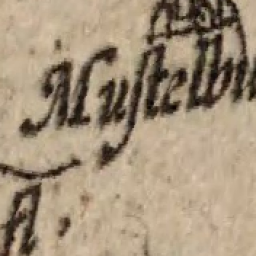 Muſtelbu
fl.